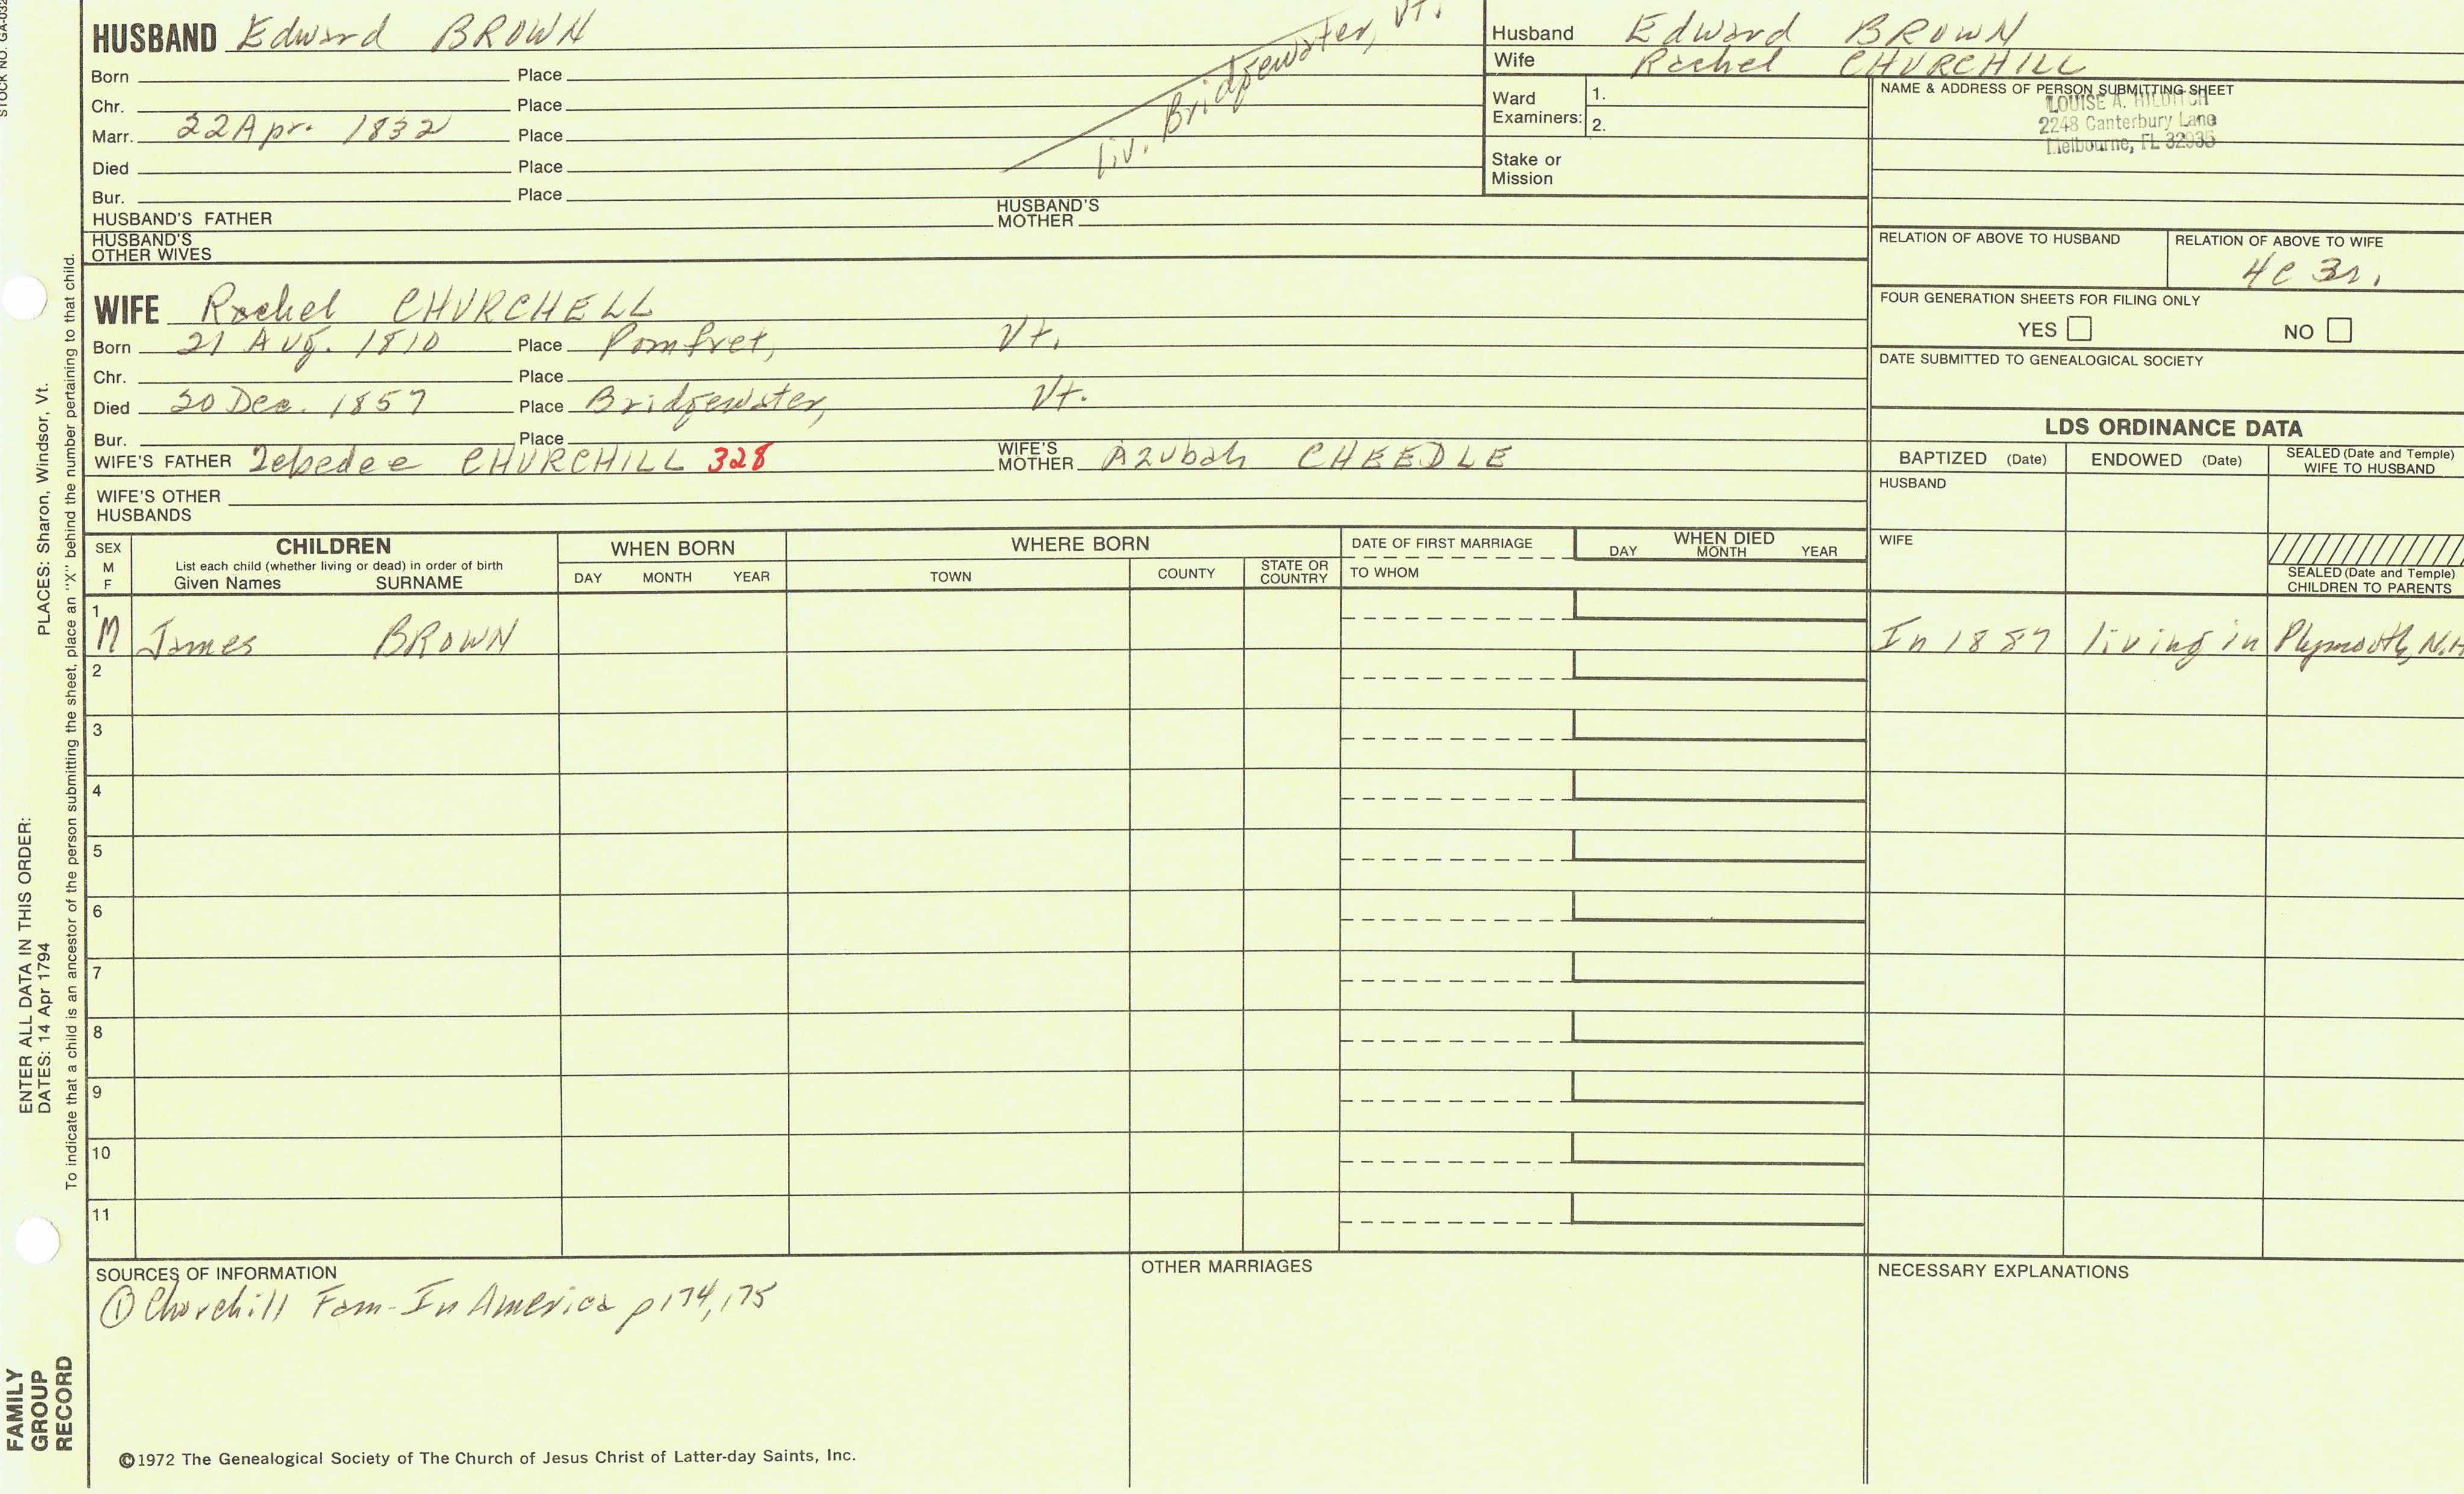 STOCK NO. GA-032
HUSBAND Edward BROWN
Born Place
Chr. Place
Marr. 22 Apr. 1832 Place
Died Place
Bur. Place
liv. Bridgewater, Vt.
HUSBAND'S FATHER HUSBAND'S MOTHER
HUSBAND'S OTHER WIVES
Husband Edward BROWN
Wife Rachel CHURCHILL
Ward Examiners: 1.
2.
Stake or Mission
NAME & ADDRESS OF PERSON SUBMITTING SHEET
LOUISE A. HILDITCH
2248 Canterbury Lane
Melbourne, FL 32935
RELATION OF ABOVE TO HUSBAND RELATION OF ABOVE TO WIFE
4C 3r.
FOUR GENERATION SHEETS FOR FILING ONLY
YES NO
DATE SUBMITTED TO GENEALOGICAL SOCIETY
WIFE Rachel CHURCHELL
Born 21 Aug. 1810 Place Pomfret, Vt.
Chr. Place
Died 20 Dec. 1857 Place Bridgewater, Vt.
Bur. Place
WIFE'S FATHER Zebedee CHURCHILL 328 WIFE'S MOTHER Azubah CHEEDLE
WIFE'S OTHER HUSBANDS
LDS ORDINANCE DATA
BAPTIZED (Date) ENDOWED (Date) SEALED (Date and Temple) WIFE TO HUSBAND
HUSBAND
WIFE
SEALED (Date and Temple) CHILDREN TO PARENTS
SEX M F
CHILDREN
List each child (whether living or dead) in order of birth
Given Names SURNAME
WHEN BORN
DAY MONTH YEAR
WHERE BORN
TOWN COUNTY STATE OR COUNTRY
DATE OF FIRST MARRIAGE
TO WHOM
WHEN DIED
DAY MONTH YEAR
1 M James BROWN In 1887 living in Plymouth, N.H
2
3
4
5
6
7
8
9
10
11
SOURCES OF INFORMATION
① Churchill Fam-In America p174,175
OTHER MARRIAGES
NECESSARY EXPLANATIONS
©1972 The Genealogical Society of The Church of Jesus Christ of Latter-day Saints, Inc.
FAMILY
GROUP
RECORD
ENTER ALL DATA IN THIS ORDER:
DATES: 14 Apr 1794 PLACES: Sharon, Windsor, Vt.
To indicate that a child is an ancestor of the person submitting the sheet, place an "X" behind the number pertaining to that child.